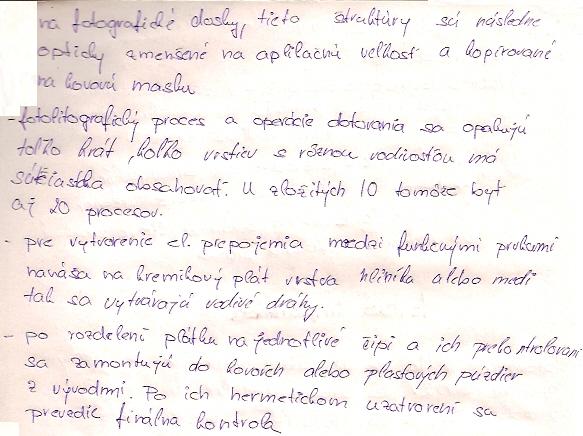 na fotografické dosky, tieto štruktúry sú následne
opticky zmenšené na aplikačnú veľkosť a kopírované
na kovovú masku
- fotolitografický proces a operácie dotovania sa opakujú
toľko krát, koľko vrstiev s rôznou vodivosťou má
súčiastka obsahovať. U zložitých IO to môže byť
aj 20 procesov.
- pre vytvorenie el. prepojenia medzi funkčnými prvkami
nanáša na kremíkový plát vrstva hliníka alebo medi
tak sa vytvárajú vodivé dráhy.
- po rozdelení plátku na jednotlivé čipi a ich prekontrolovaní
sa zamontujú do kovoich alebo plastových púzdier
z vývodmi. Po ich hermetickom uzatvorení sa
prevedie finálna kontrola